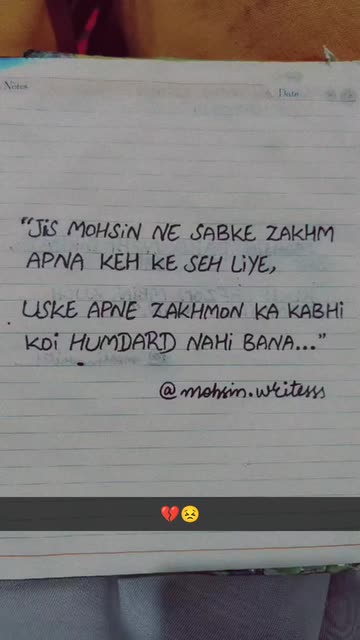 Notes
Date
"JiS MOHSiN NE SABKE ZAKHM
APNA KEH KE SEH LiYE,
USKE APNE ZAKHMON KA KABHi
KOi HUMDARD NAHi BANA..."
@mohsin.writesss
💔😣